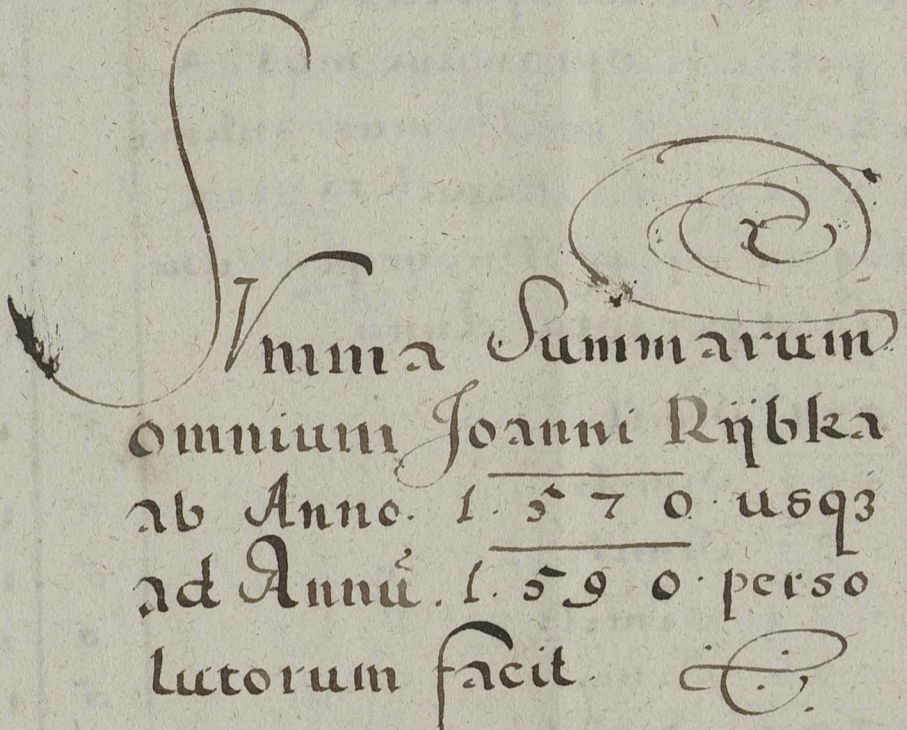 SVmma Summarum
omnium Joanni Rÿbka
ab Anno. 1.570. usqꝫ
ad Annū. 1.590. perso
lutorum facit.